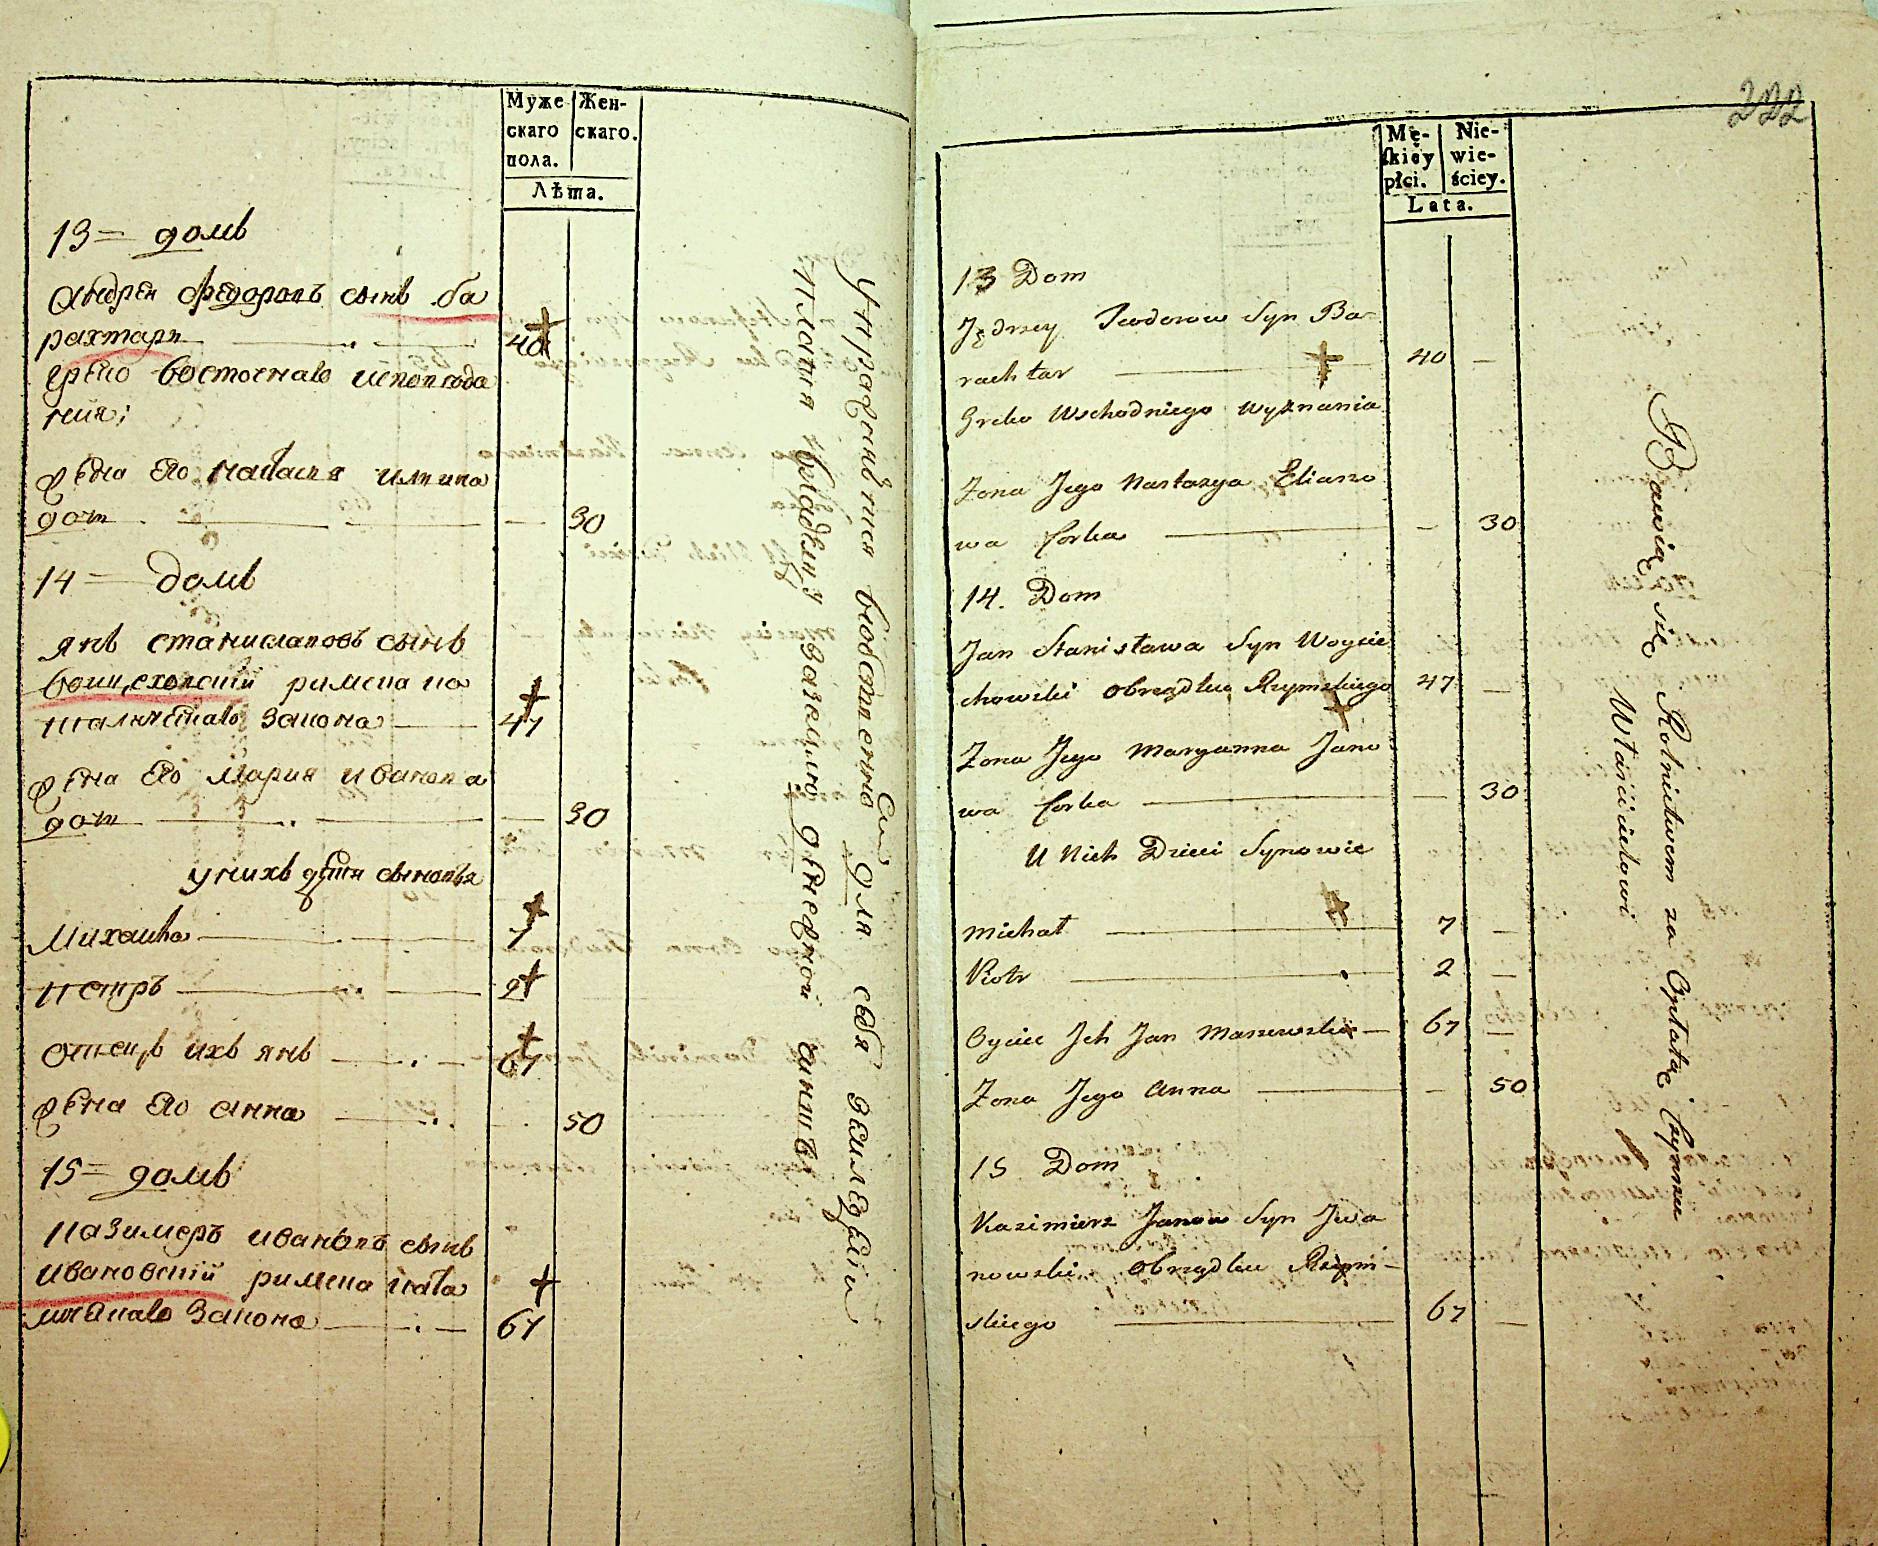 Муже
скаго
пола.
Жен-
скаго.
Лѣта.
13 = домъ
Андрей Федоровъ сынъ Ба
рахтаръ 40
греко восточнаго исповѣда
нія;
жена его Настасія
дочь 30
14 = домъ
янъ станиславовъ сынъ
войцеховскій римско ка
толическаго закона 47
жена его Мария иванова
дочь 30
у нихъ дѣти сыновья
Михайло 7
петръ 2
отецъ ихъ янъ 67
жена его анна 50
15 = домъ
казимеръ ивановъ сынъ
ивановскій римско като
лическаго закона 67
упражняются собственно для себя земледѣліем
платя владельцу за землю денежной чиншъ
222
Mę-
skiéy
płci.
Nie-
wie-
ściey.
Lata.
13 Dom
Jędrzey Teodorow Syn Ba-
rachtar 40 —
Greko Wschodniego Wyznania
Zona Jego Nastazya Eliaszo
wa Corka — 30
14. Dom
Jan Stanisława Syn Woycie
chowski obrządku Rzymskiego 47 —
Zona Jego Maryanna Jano
wa Corka — 30
U Nich Dzieci Synowie
Michał 7 —
Piotr 2 —
Oyciec Ich Jan 67 —
Zona Jego Anna — 50
15 Dom
Kazimierz Janow Syn Iwa
nowski obrządku Rzym-
skiego 67 —
Bawią się Rolnictwem za Opłatą Czynszu
Właścicielowi